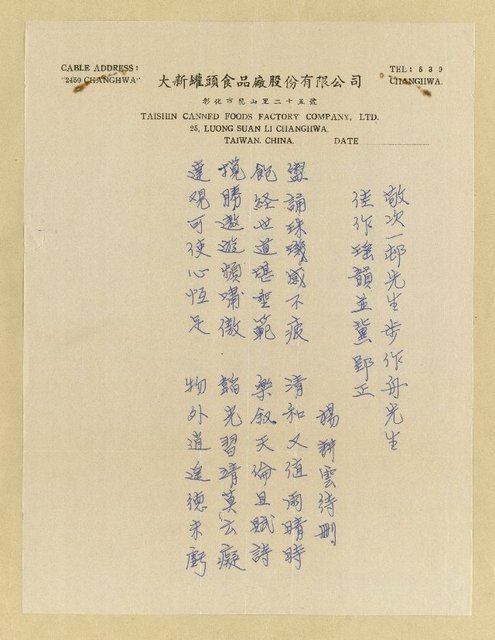 CABLE ADDRESS:
"2450 CHANGHWA"
大新罐頭食品廠股份有限公司
THL: 539
CHANGHWA.
彰化市龍山里二十五號
TAISHIN CANNED FOODS FACTORY COMPANY, LTD.
25, LUONG SUAN LI CHANGHWA.
TAIWAN. CHINA.
DATE
敬次一邨先生步作舟先生
佳作瑤韻並冀郢正
楊耕雲待刪
盥誦珠璣感不疲 清和又值雨晴時
飽經世道堪垂範 樂叙天倫且賦詩
攬勝遨遊頻嘯傲 韜光習靖莫云癡
達觀可使心恆足 物外逍遙德未虧